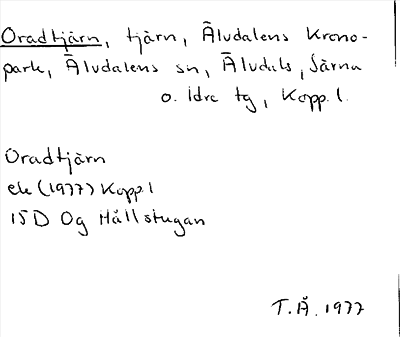 Oradtjärn, tjärn, Älvdalens Krono-
park, Älvdalens sn, Älvdals, Särna
o. Idre tg, Kopp. l.
Oradtjärn
ek (1977) Kopp. l
15D 0g Hållstugan
T.Å. 1977